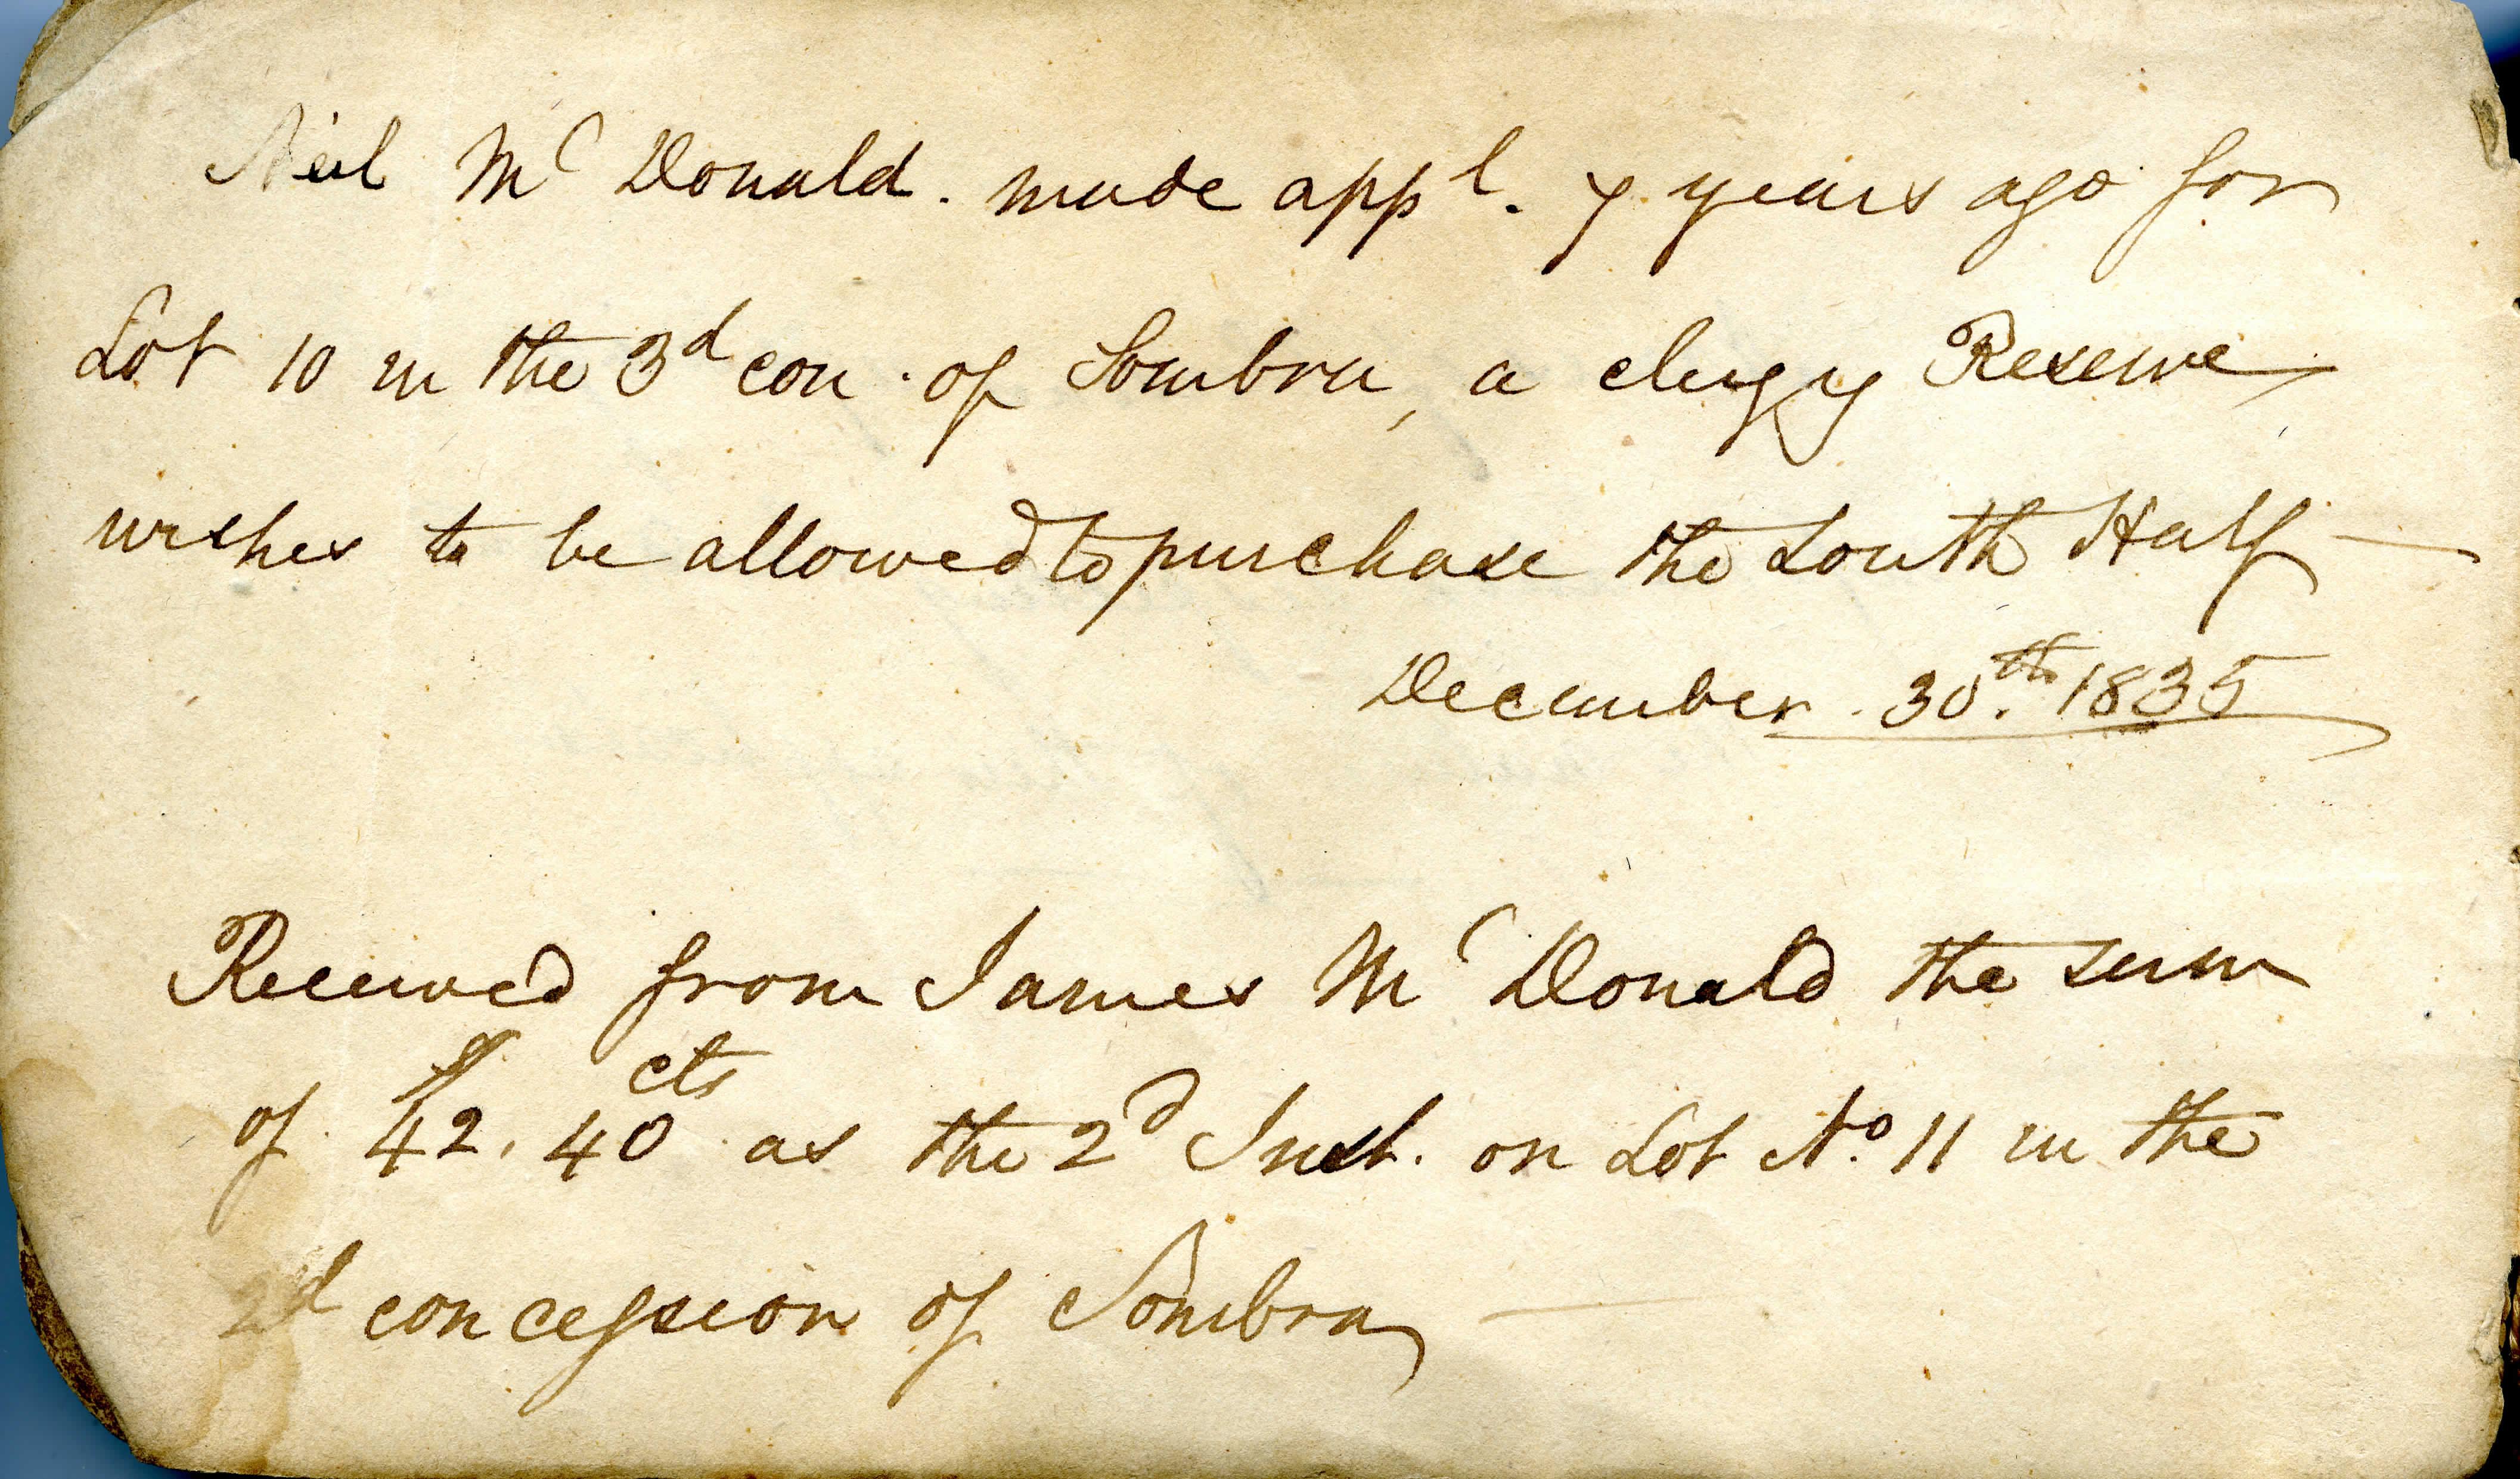 Neil Mc Donald. made appl. 7 years ago for
Lot 10 in the 3d con. of Sombra, a clergy Reserve
wishes to be allowed to purchase the South Half —
December. 30th. 1835
Received from James Mc Donald the sum
of $42. 40cts as the 2d Inst. on Lot No. 11 in the
2d concession of Sombra —